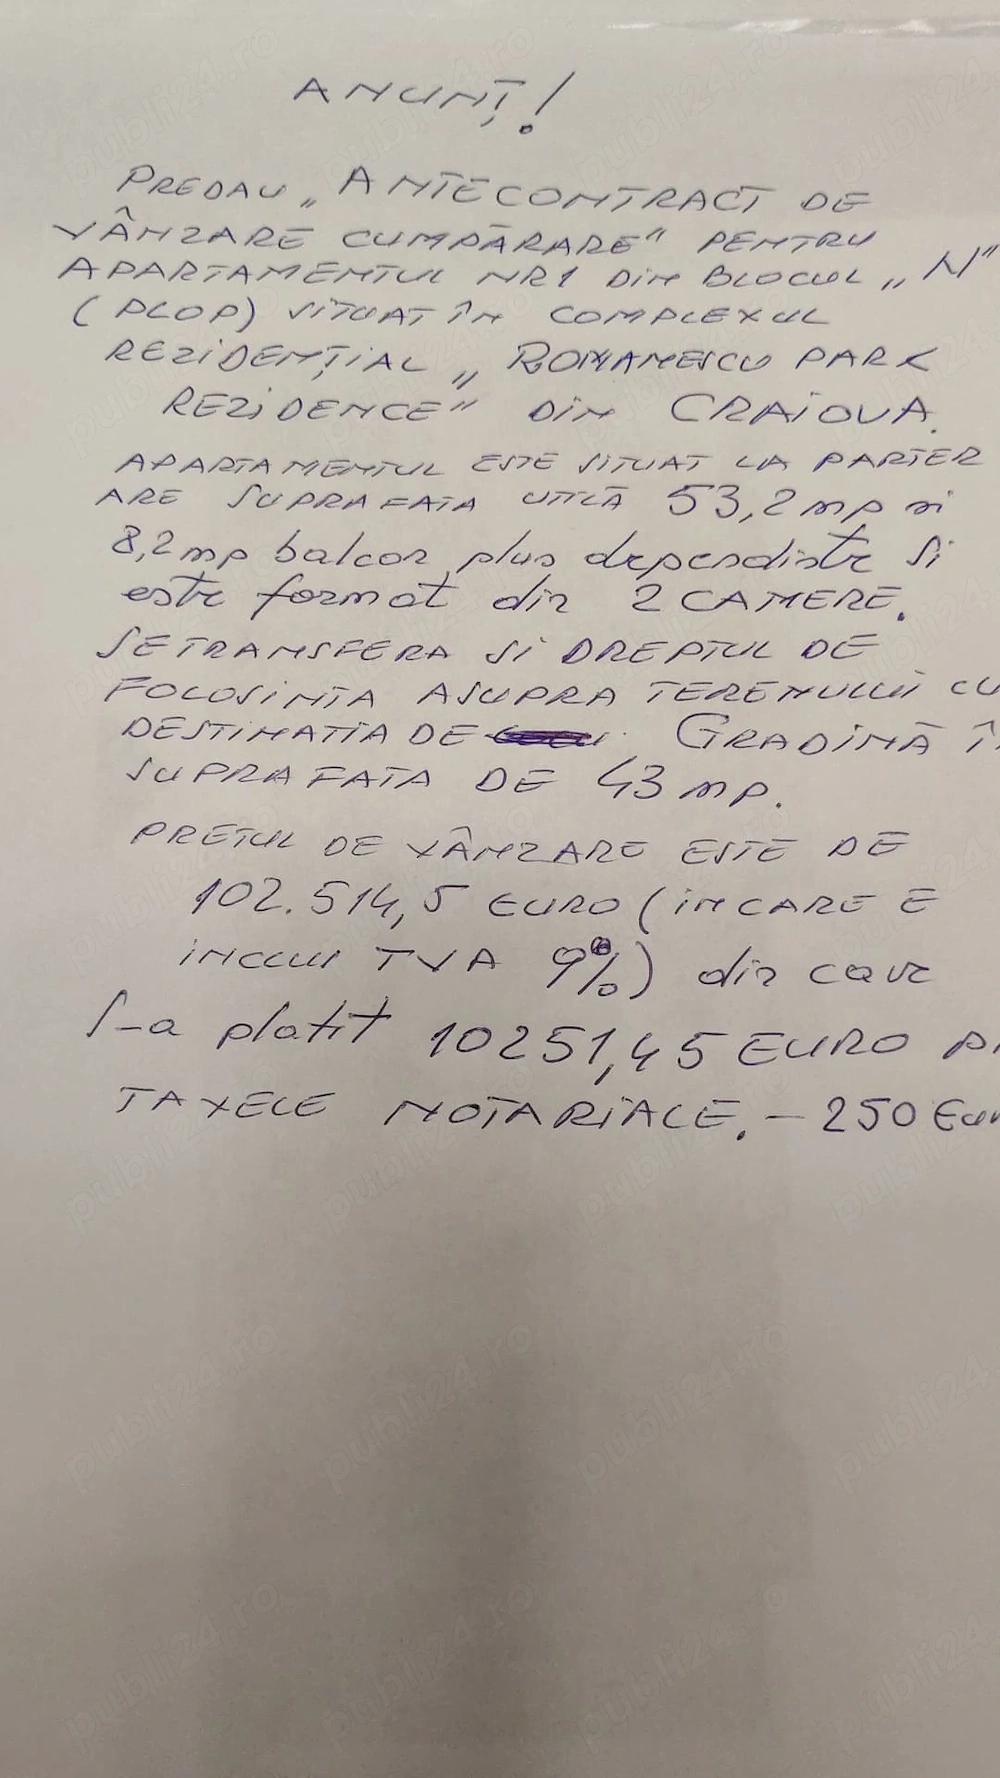 ANUNȚ!
PREDAU „ANTECONTRACT DE
VÂNZARE CUMPĂRARE" PENTRU
APARTAMENTUL NR1 DIN BLOCUL „N"
(PLOP) SITUAT ÎN COMPLEXUL
REZIDENȚIAL „ROMANESCU PARK
REZIDENCE" DIN CRAIOVA.
APARTAMENTUL ESTE SITUAT LA PARTER
ARE SUPRAFATA UTILĂ 53,2 mp si
8,2 mp balcon plus dependinte si
este format din 2 CAMERE.
SE TRANSFERA SI DREPTUL DE
FOLOSINTA ASUPRA TERENULUI CU
DESTINATIA DE GRADINĂ Î
SUPRAFATA DE 43 mp.
PRETUL DE VÂNZARE ESTE DE
102.514,5 EURO (IN CARE E
INCLUS TVA 9%) din care
S-a platit 10251,45 EURO
TAXELE NOTARIALE. - 250 Eur
publi24.ro